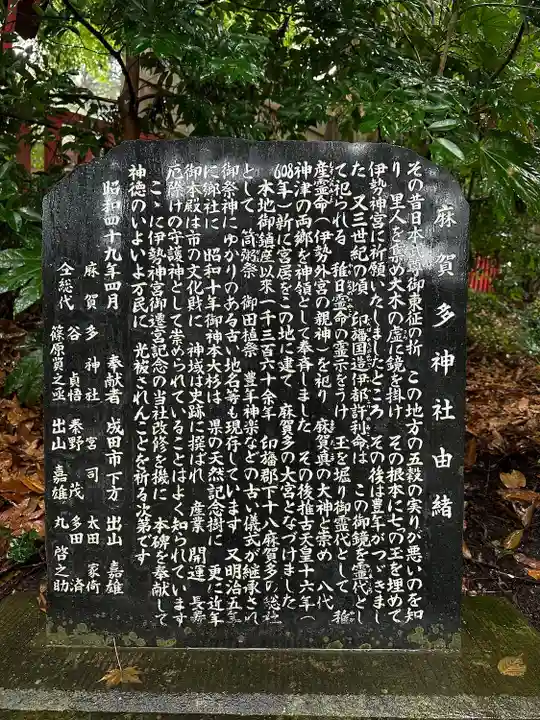 麻賀多神社由緒
その昔日本武尊御東征の折 この地方の五穀の実りが悪いのを知
り 里人を集め大木の虚に鏡を掛け その根本に七つの玉を埋めて
伊勢神宮に祈願いたしましたところ その後は豊年がつづきまし
た 又三世紀の頃 印旛国造伊都許利命は この御鏡を霊代とし
て祀られる 稚日霊命の霊示をうけ 玉を堀り御霊代として 稚
産霊命(伊勢外宮の親神)を祀り 麻賀真の大神と崇め 八代
神津の両郷を神領として奉斉しました その後推古天皇十六年(
608年)新に宮居をこの地に建て 麻賀多の大宮となづけました
本地御鎮座以来一千三百六十余年 印旛郡下十八麻賀多の総社
として 筒粥祭 御田植祭 豊年神楽などの古い儀式が継承され
御祭神にゆかりのある古い地名等も現存しています 又明治五年
に郷社に 昭和十年御神木大杉は 県の天然記念樹に 更に近年
御本殿は市の文化財に 神域は史跡に撰ばれ 産業 開運 長寿
厄除けの守護神として崇められていることはよく知られています
こゝに伊勢神宮御遷宮記念の当社改修を機に 本碑を奉献して
神徳のいよいよ万民に 光被されんことを祈る次第です
昭和四十九年四月 奉献者 成田市下方 出山 嘉雄
麻賀多神社 宮司 太田 家衛
仝総代 谷 貞悟 秦野 茂 多田 済
篠原賞之丞 出山 嘉雄 丸 啓之助